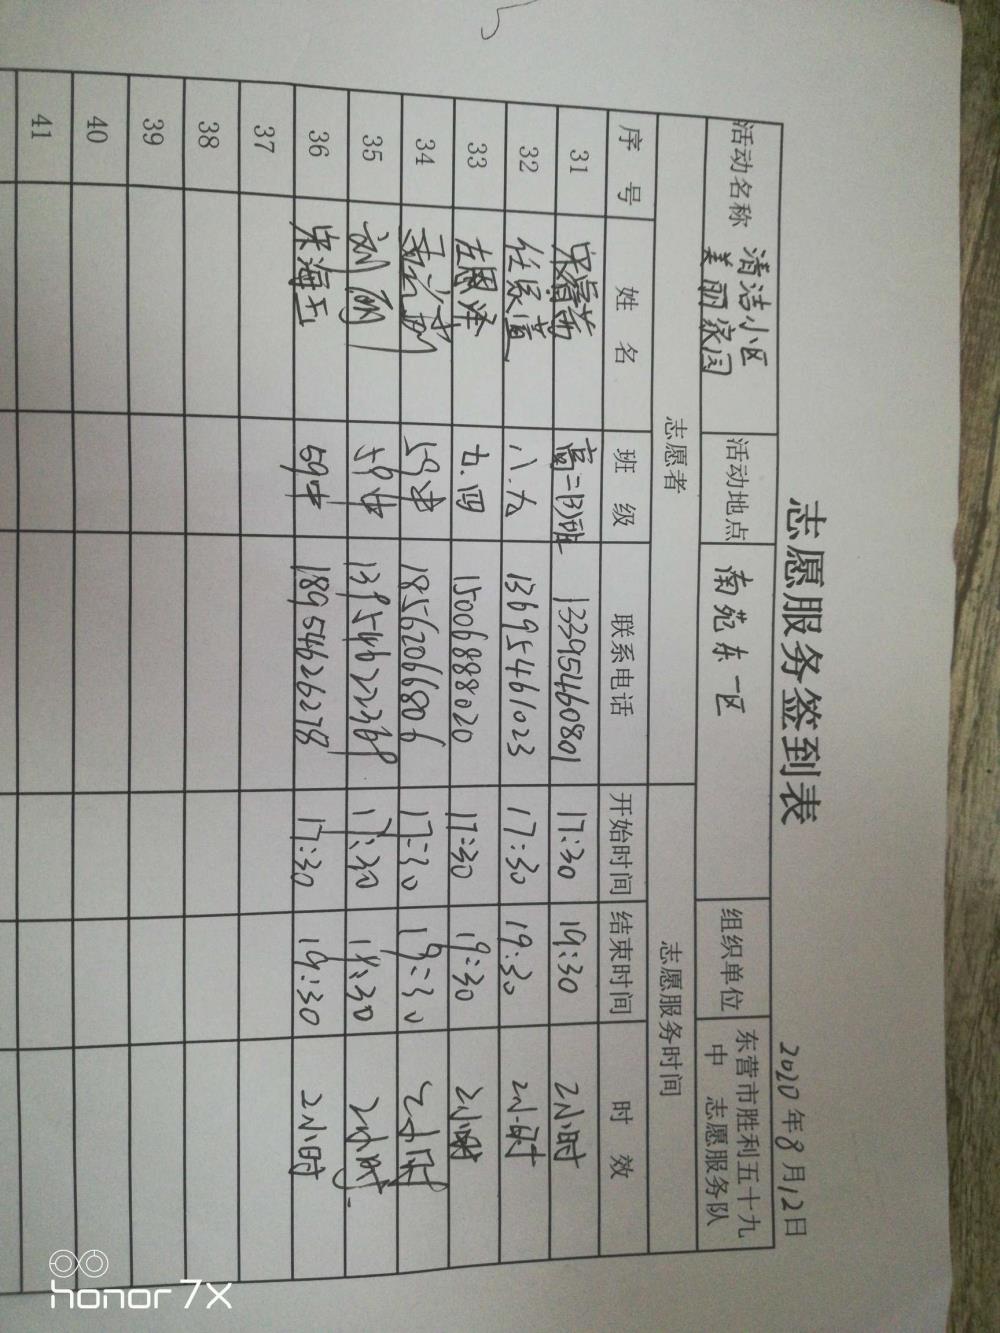 志愿服务签到表
2020年8月12日
活动名称 清洁小区 美丽家园 活动地点 南苑东一区 组织单位 东营市胜利五十九中 志愿服务队
志愿者 志愿服务时间
序号 姓名 班级 联系电话 开始时间 结束时间 时效
31 高二(3)班 13395460801 17:30 19:30 2小时
32 八.九 13695461023 17:30 19:30 2小时
33 左恩泽 九.四 15006888020 17:30 19:30 2小时
34 59中 18562066806 17:30 19:30 2小时
35 刘丽 59中 17:30 19:30 2小时
36 朱海玉 59中 18954626278 17:30 19:30 2小时
37
38
39
40
41
honor 7X